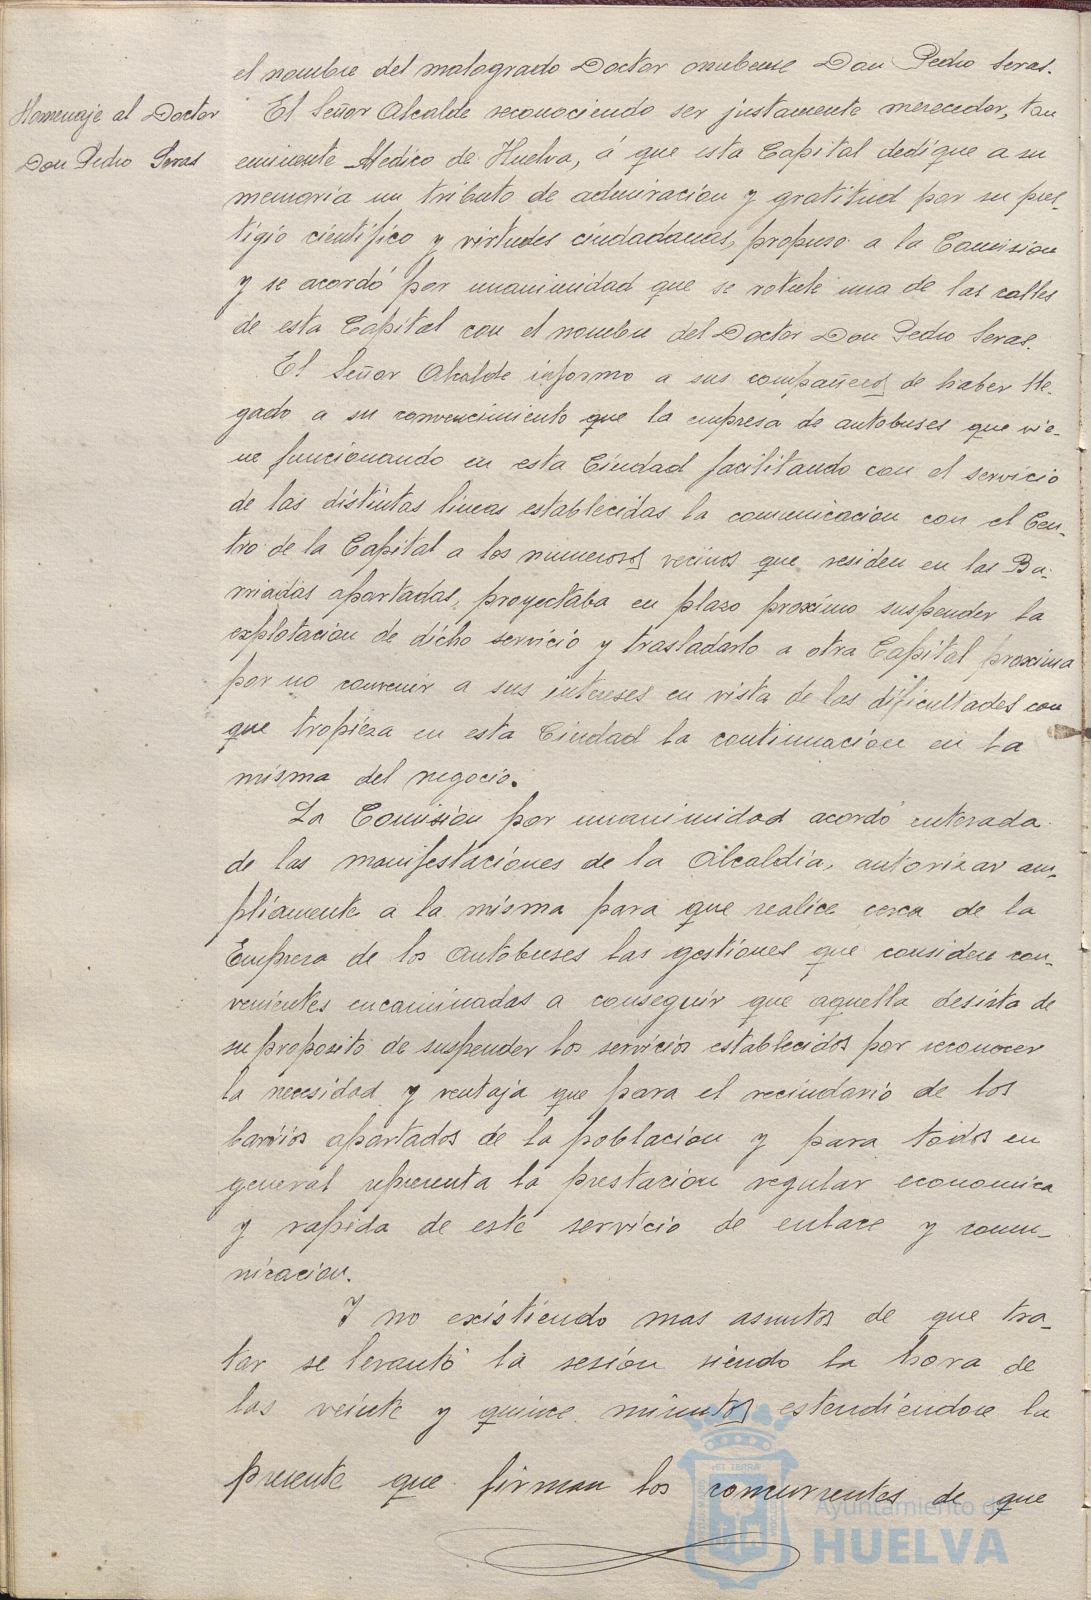 el nombre del malogrado Doctor onubense Don Pedro Seras.
Homenaje al Doctor
Don Pedro Seras
El Señor Alcalde reconociendo ser justamente merecedor, tan
eminente Medico de Huelva, á que esta Capital dedique a su
memoria un tributo de admiracion y gratitud por su pres-
tigio cientifico y virtudes ciudadanas, propuso a la Comision
y se acordó por unanimidad que se rotule una de las calles
de esta Capital con el nombre del Doctor Don Pedro Seras.
El Señor Alcalde informo a sus compañeros de haber lle-
gado a su convencimiento que la empresa de autobuses que vie-
ne funcionando en esta Ciudad facilitando con el servicio
de las distintas lineas establecidas la comunicacion con el Cen-
tro de la Capital a los numerosos vecinos que residen en las Ba-
rriadas apartadas, proyectaba en plazo proximo suspender la
explotacion de dicho servicio y trasladarlo a otra Capital proxima
por no convenir a sus intereses en vista de las dificultades con
que tropieza en esta Ciudad la continuacion en la
misma del negocio.
La Comision por unanimidad acordó enterada
de las manifestaciones de la Alcaldia, autorizar am-
pliamente a la misma para que realice cerca de la
Empresa de los Autobuses las gestiones que considere con-
venientes encaminadas a conseguir que aquella desista de
su proposito de suspender los servicios establecidos por reconocer
la necesidad y ventaja que para el vecindario de los
barrios apartados de la poblacion y para todos en
general representa la prestacion regular economica
y rapida de este servicio de enlace y comu-
nicacion.
Y no existiendo mas asuntos de que tra-
tar se levantó la sesión siendo la hora de
las veinte y quince minutos estendiéndose la
presente que firman los concurrentes de que
Ayuntamiento de
HUELVA